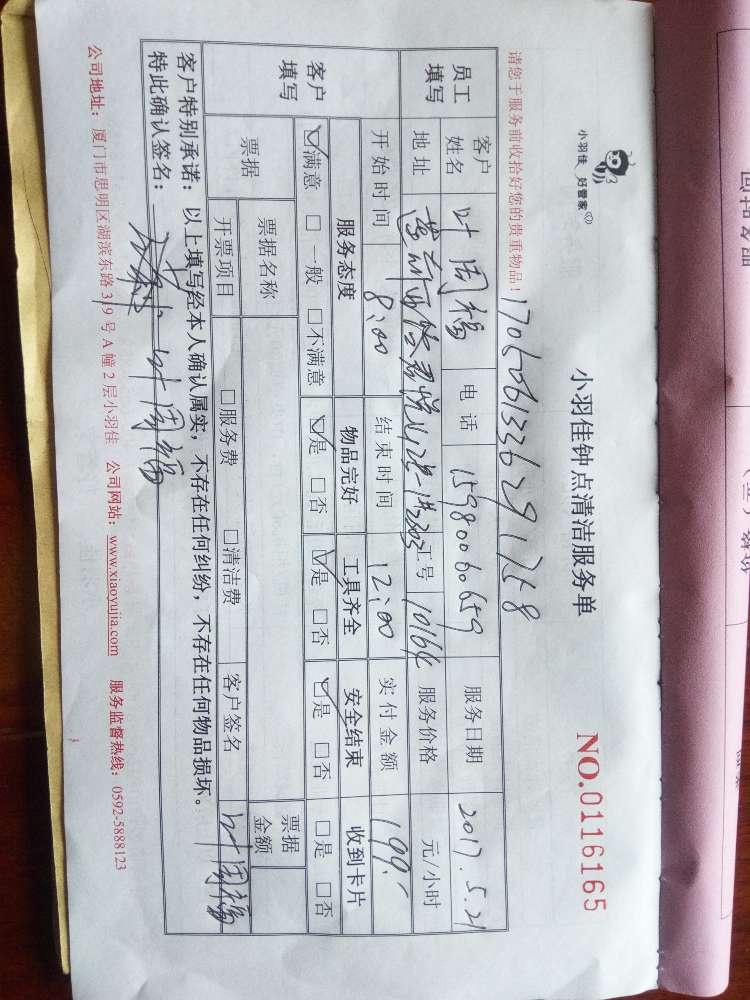 小羽佳 好管家
小羽佳钟点清洁服务单
NO.0116165
请您于服务前收拾好您的贵重物品！
员工填写
客户姓名 叶周福 电话 15980060659 服务日期 2017.5.21
地址 工号 10164 服务价格 元/小时
开始时间 8:00 结束时间 12:00 实付金额 199.-
客户填写
服务态度 物品完好 工具齐全 安全结束 收到卡片
☑满意 □一般 □不满意 ☑是 □否 ☑是 □否 ☑是 □否 □是 □否
票据 票据名称 票据金额
开票项目 □服务费 □清洁费 客户签名 叶周福
客户特别承诺：以上填写经本人确认属实，不存在任何纠纷，不存在任何物品损坏。
特此确认签名： 叶周福
公司地址：厦门市思明区湖滨东路319号A幢2层小羽佳 公司网站：www.xiaoyujia.com 服务监督热线：0592-5888123